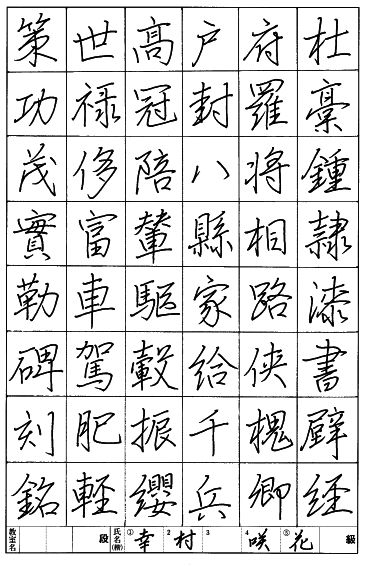 杜稾鍾隷漆書壁経
府羅将相路侠槐卿
戸封八縣家給千兵
髙冠陪輦驅轂振纓
世禄侈富車駕肥軽
策功茂實勒碑刻銘
教室名 段 氏名(楷) ① 幸 2 村 3 4 咲 ⑤ 花 級